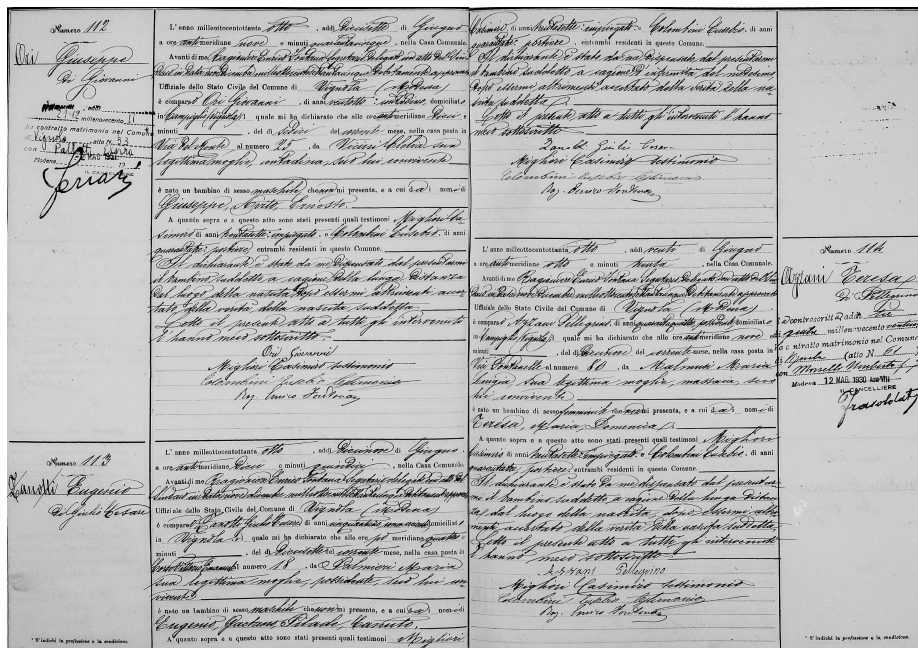 Numero 112
Ori Giuseppe
di Giovanni
addì
millenovecento
ha contratto matrimonio nel Comune
di Vignola atto N. 33
con
Modena, MAG 1931
IL CANCELLIERE
L' anno milleottocentottanta otto, addì diecisette di Giugno
a ore antimeridiane nove e minuti quarantacinque, nella Casa Comunale.
Avanti di me Ragioniere Enrico Fontana Segretario Delegato con atto del Sin
daco
Uffiziale dello Stato Civile del Comune di Vignola (Modena)
è comparso Ori Giovanni di anni ventotto domiciliato
in Campiglio (Vignola) quale mi ha dichiarato che alle ore antimeridiane dieci e
minuti — del dì sedici del corrente mese, nella casa posta in
Via del Monte al numero 25, da sua
legittima moglie, contadina, seco lui convivente
è nato un bambino di sesso maschile che non mi presenta, e a cui dà i nomi di
Giuseppe, Ernesto.
A quanto sopra e a questo atto sono stati presenti quali testimoni Miglióri Ca
simiro di anni trentasette impiegato e Colombini Eusebio, di anni
quarantatre portiere, entrambi residenti in questo Comune.
Il dichiarante è stato da me dispensato dal presentarmi
il bambino suddetto a cagione della lunga distanza
del luogo della nascita, dopo essermi altrimenti accer
tato della verità della nascita suddetta.
Letto il presente atto a tutti gli intervenuti
li hanno meco sottoscritto.
Ori Giovanni
Migliori Casimiro testimonio
Colombini Eusebio testimonio
Rag. Enrico Fontana
Numero 113
Zanotti Eugenio
di Giulio Cesare
L' anno milleottocentottanta otto, addì diecinove di Giugno
a ore antimeridiane dieci e minuti quindici, nella Casa Comunale.
Avanti di me Ragioniere Enrico Fontana Segretario delegato con atto del
Sindaco
Uffiziale dello Stato Civile del Comune di Vignola (Modena)
è comparso Zanotti Giulio Cesare di anni domiciliato
in Vignola quale mi ha dichiarato che alle ore pomeridiane quattro e
minuti — del dì diecisette del corrente mese, nella casa posta in
al numero 18, da Palmieri Maria
sua legittima moglie, possidente, seco lui con
vivente
è nato un bambino di sesso maschile che non mi presenta, e a cui dà i nomi di
Eugenio, Gaetano, Pilade, Canuto.
A quanto sopra e a questo atto sono stati presenti quali testimoni Migliori
* S' indichi la professione o la condizione.
Casimiro, di anni trentasette impiegato e Colombini Eusebio, di anni
quarantatre portiere, entrambi residenti in questo Comune.
Il dichiarante è stato da me dispensato dal presentarmi
il bambino suddetto a cagione di infermità del medesimo
dopo essermi altrimenti accertato della verità della na
scita suddetta.
Letto il presente atto a tutti gli intervenuti l'hanno
meco sottoscritto
Zanotti Giulio Cesare
Migliori Casimiro testimonio
Colombini Eusebio testimonio
Rag. Enrico Fontana
L' anno milleottocentottanta otto, addì venti di Giugno
a ore antimeridiane otto e minuti trenta, nella Casa Comunale.
Avanti di me Ragioniere Enrico Fontana Segretario Delegato con atto del Sin
daco
Uffiziale dello Stato Civile del Comune di Vignola (Modena)
è comparso Azzani Pellegrino, di anni quarantaquattro possidente domiciliato
in Campiglio (Vignola) quale mi ha dichiarato che alle ore antimeridiane nove e
minuti — del dì diecinove del corrente mese, nella casa posta in
Via Fontanelle al numero 80, da Malmusi Maria
Luigia sua legittima moglie, massaia, seco
lui convivente
è nato un bambino di sesso femminile che non mi presenta, e a cui dà i nomi di
Teresa, Maria Domenica.
A quanto sopra e a questo atto sono stati presenti quali testimoni Migliori
Casimiro di anni trentasette impiegato e Colombini Eusebio, di anni
quarantatre, portiere, entrambi residenti in questo Comune.
Il dichiarante è stato da me dispensato dal presentar
mi il bambino suddetto a cagione della lunga distan
za del luogo della nascita, dopo essermi altri
menti accertato della verità della nascita suddetta.
Letto il presente atto a tutti gli intervenuti
l'hanno meco sottoscritto
Azzani Pellegrino
Migliori Casimiro testimonio
Colombini Eusebio testimonio
Rag. Enrico Fontana
Numero 114
Azzani Teresa
di Pellegrino
La controscritta addì
di millenovecento
ha contratto matrimonio nel Comune
di (atto N. 61
con Umberto
Modena 12 MAG. 1930 Anno VIII
IL CANCELLIERE
* S' indichi la professione o la condizione.